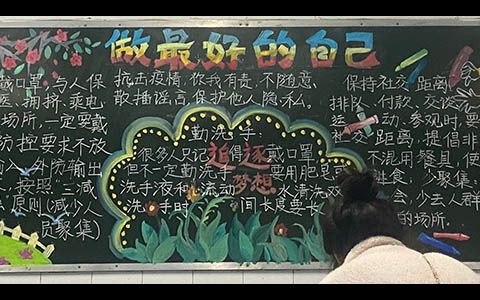 做最好的自己
戴口罩,与人保
医、拥挤、乘电
场所,一定要戴
防控要求不放
入、外防输出
按照:三减
原则(减少人
员聚集)
抗击疫情,你我有责,不随意
散播谣言,保护他人隐私。
勤洗手:
很多人只记得戴口罩
但不一定勤洗手 要用肥皂或
洗手液和流动 水清洗双
洗手时 间长度要长
追逐
梦想
保持社交距离
排队、付款、交谈
动、参观时,要
交距离,提倡非
不混用餐具,使
食,少聚集
会,少去人群
的场所。